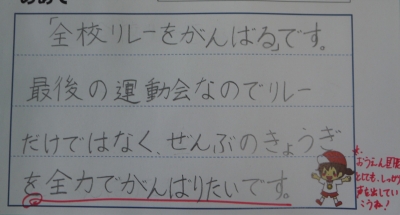 「全校リレーをがんばる」です。
最後の運動会なのでリレー
だけではなく、ぜんぶのきょうぎ
を全力でがんばりたいです。
とても、しっかり
声を出してい
こうね!